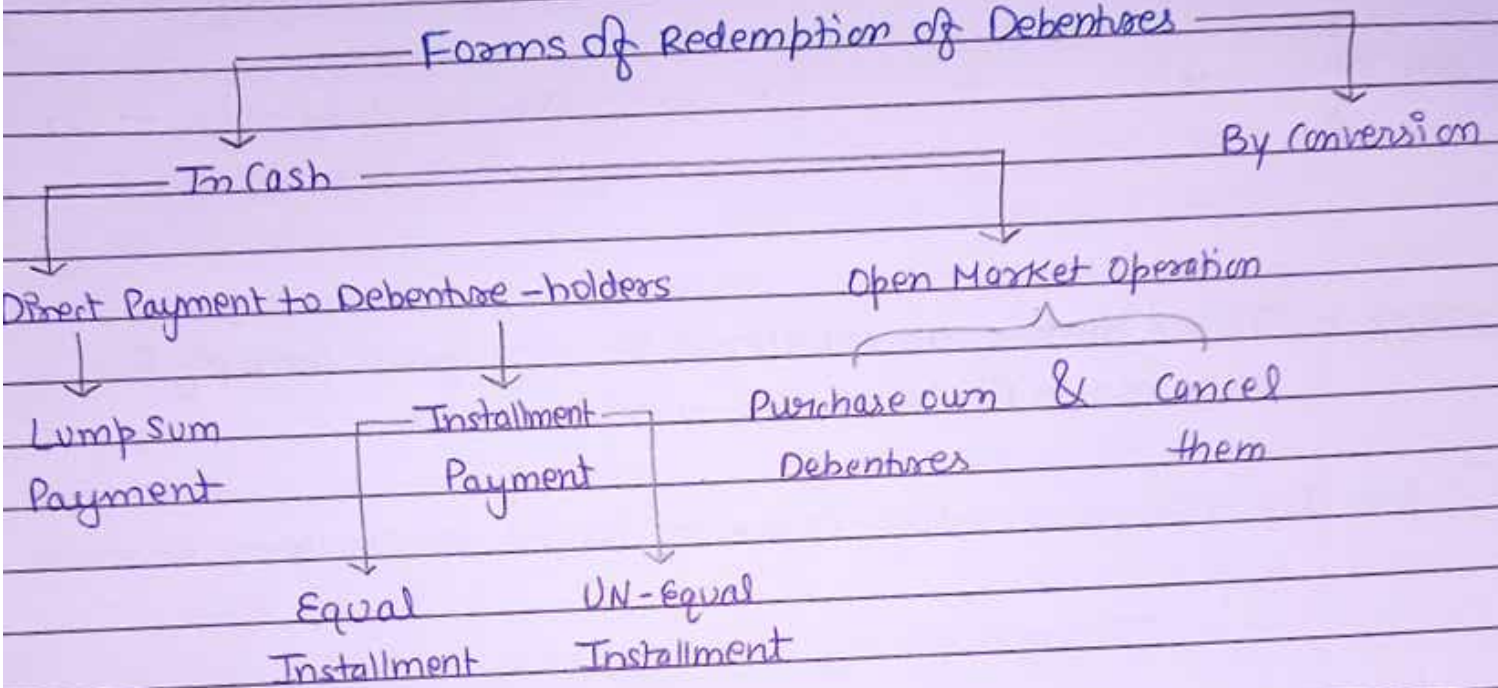 Forms Of Redemption of Debentures
By Conversion
In Cash
Direct Payment to Debenture-holders
Open Market Operation
Lump Sum
Payment
Installment
Payment
Purchase own & Cancel
Debentures them
Equal
Installment
UN-Equal
Installment